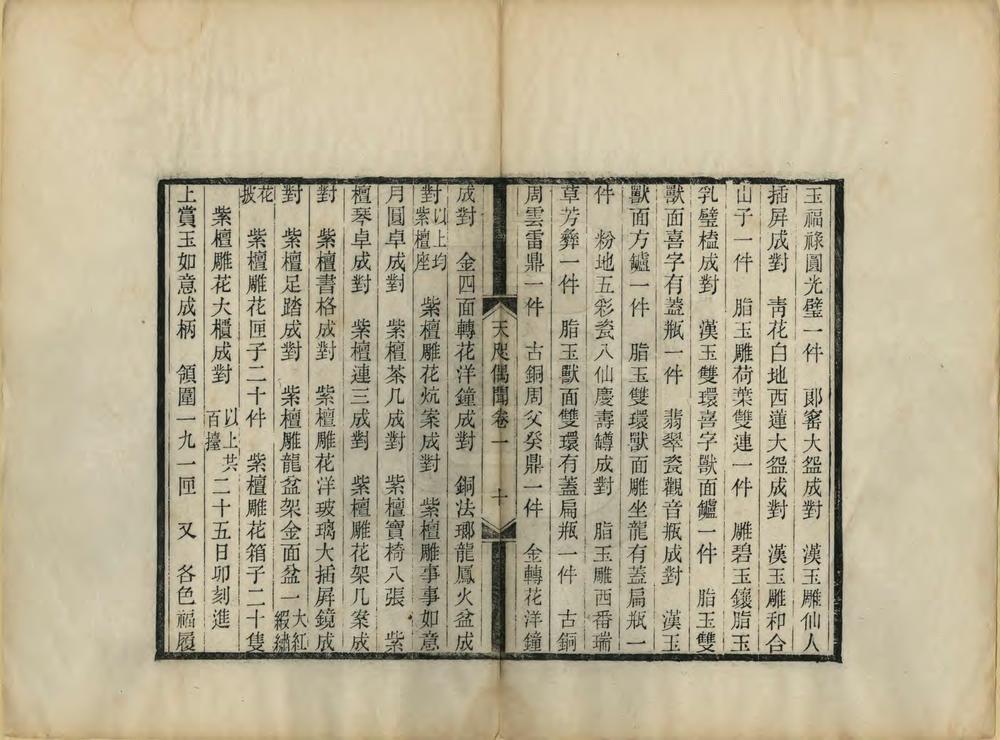 玉福祿圓光璧一件　郞窰大盌成對　漢玉雕仙人
插屏成對　靑花白地西蓮大盌成對　漢玉雕和合
山子一件　脂玉雕荷葉雙連一件　雕碧玉鑲脂玉
乳璧植成對　漢玉雙環喜字獸面鑪一件　脂玉雙
獸面喜字有蓋瓶一件　翡翠瓷觀音瓶成對　漢玉
獸面方鑪一件　脂玉雙環獸面雕坐龍有蓋扁瓶一
件　粉地五彩瓷八仙慶壽罇成對　脂玉雕西番瑞
草芳彝一件　脂玉獸面雙環有蓋扁瓶一件　古銅
周雲雷鼎一件　古銅周父癸鼎一件　金轉花洋鐘
天咫偶聞卷一　十
成對　金四面轉花洋鐘成對　銅法瑯龍鳳火盆成
對以上均紫檀座　紫檀雕花炕案成對　紫檀雕事事如意
月圓卓成對　紫檀茶几成對　紫檀寶椅八張　紫
檀琴卓成對　紫檀連三成對　紫檀雕花架几案成
對　紫檀書格成對　紫檀雕花洋玻璃大插屏鏡成
對　紫檀足踏成對　紫檀雕龍盆架金面盆一大紅緞繡
花披　紫檀雕花匣子二十件　紫檀雕花箱子二十隻
紫檀雕花大櫃成對　以上共百擡二十五日卯刻進
上賞玉如意成柄　領圍一九一匣　又　各色福履